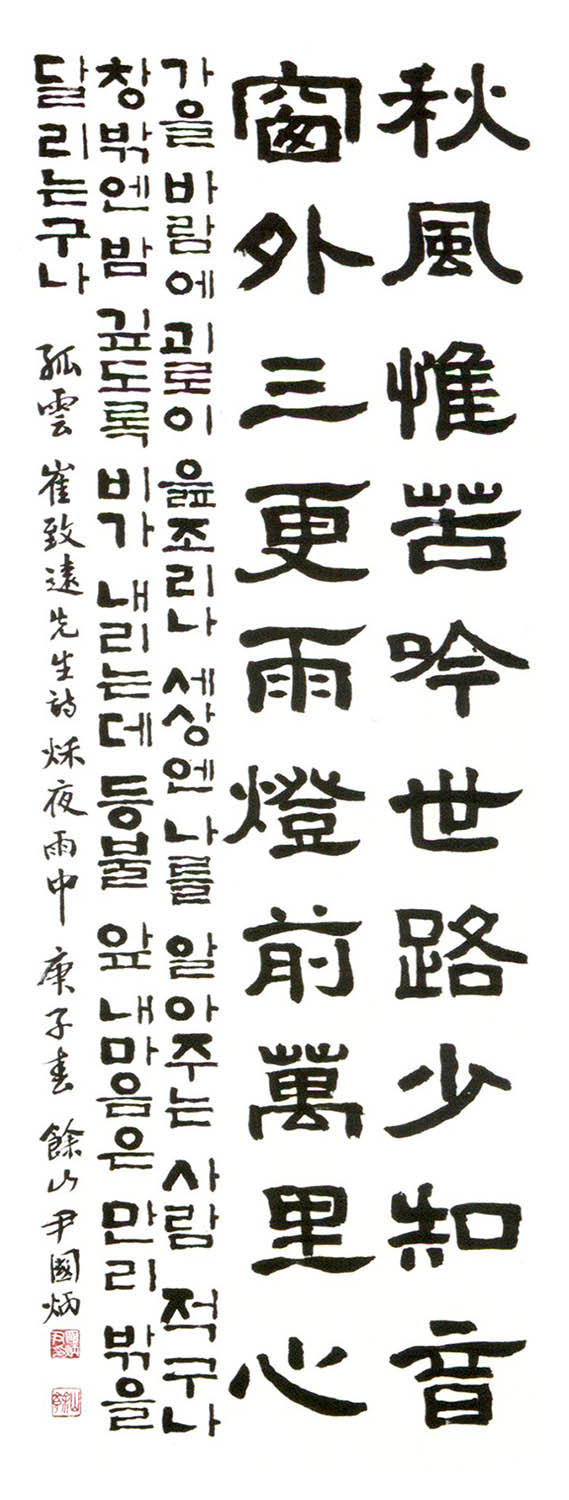 秋風惟苦吟世路少知音
窗外三更雨燈前萬里心
가을 바람에 괴로이 읊조리나 세상엔 나를 알아주는 사람 적구나
창밖엔 밤 깊도록 비가 내리는데 등불 앞 내마음은 만리 밖을
달리는구나
孤雲 崔致遠先生詩 秌夜雨中 庚子春 餘山 尹國炳